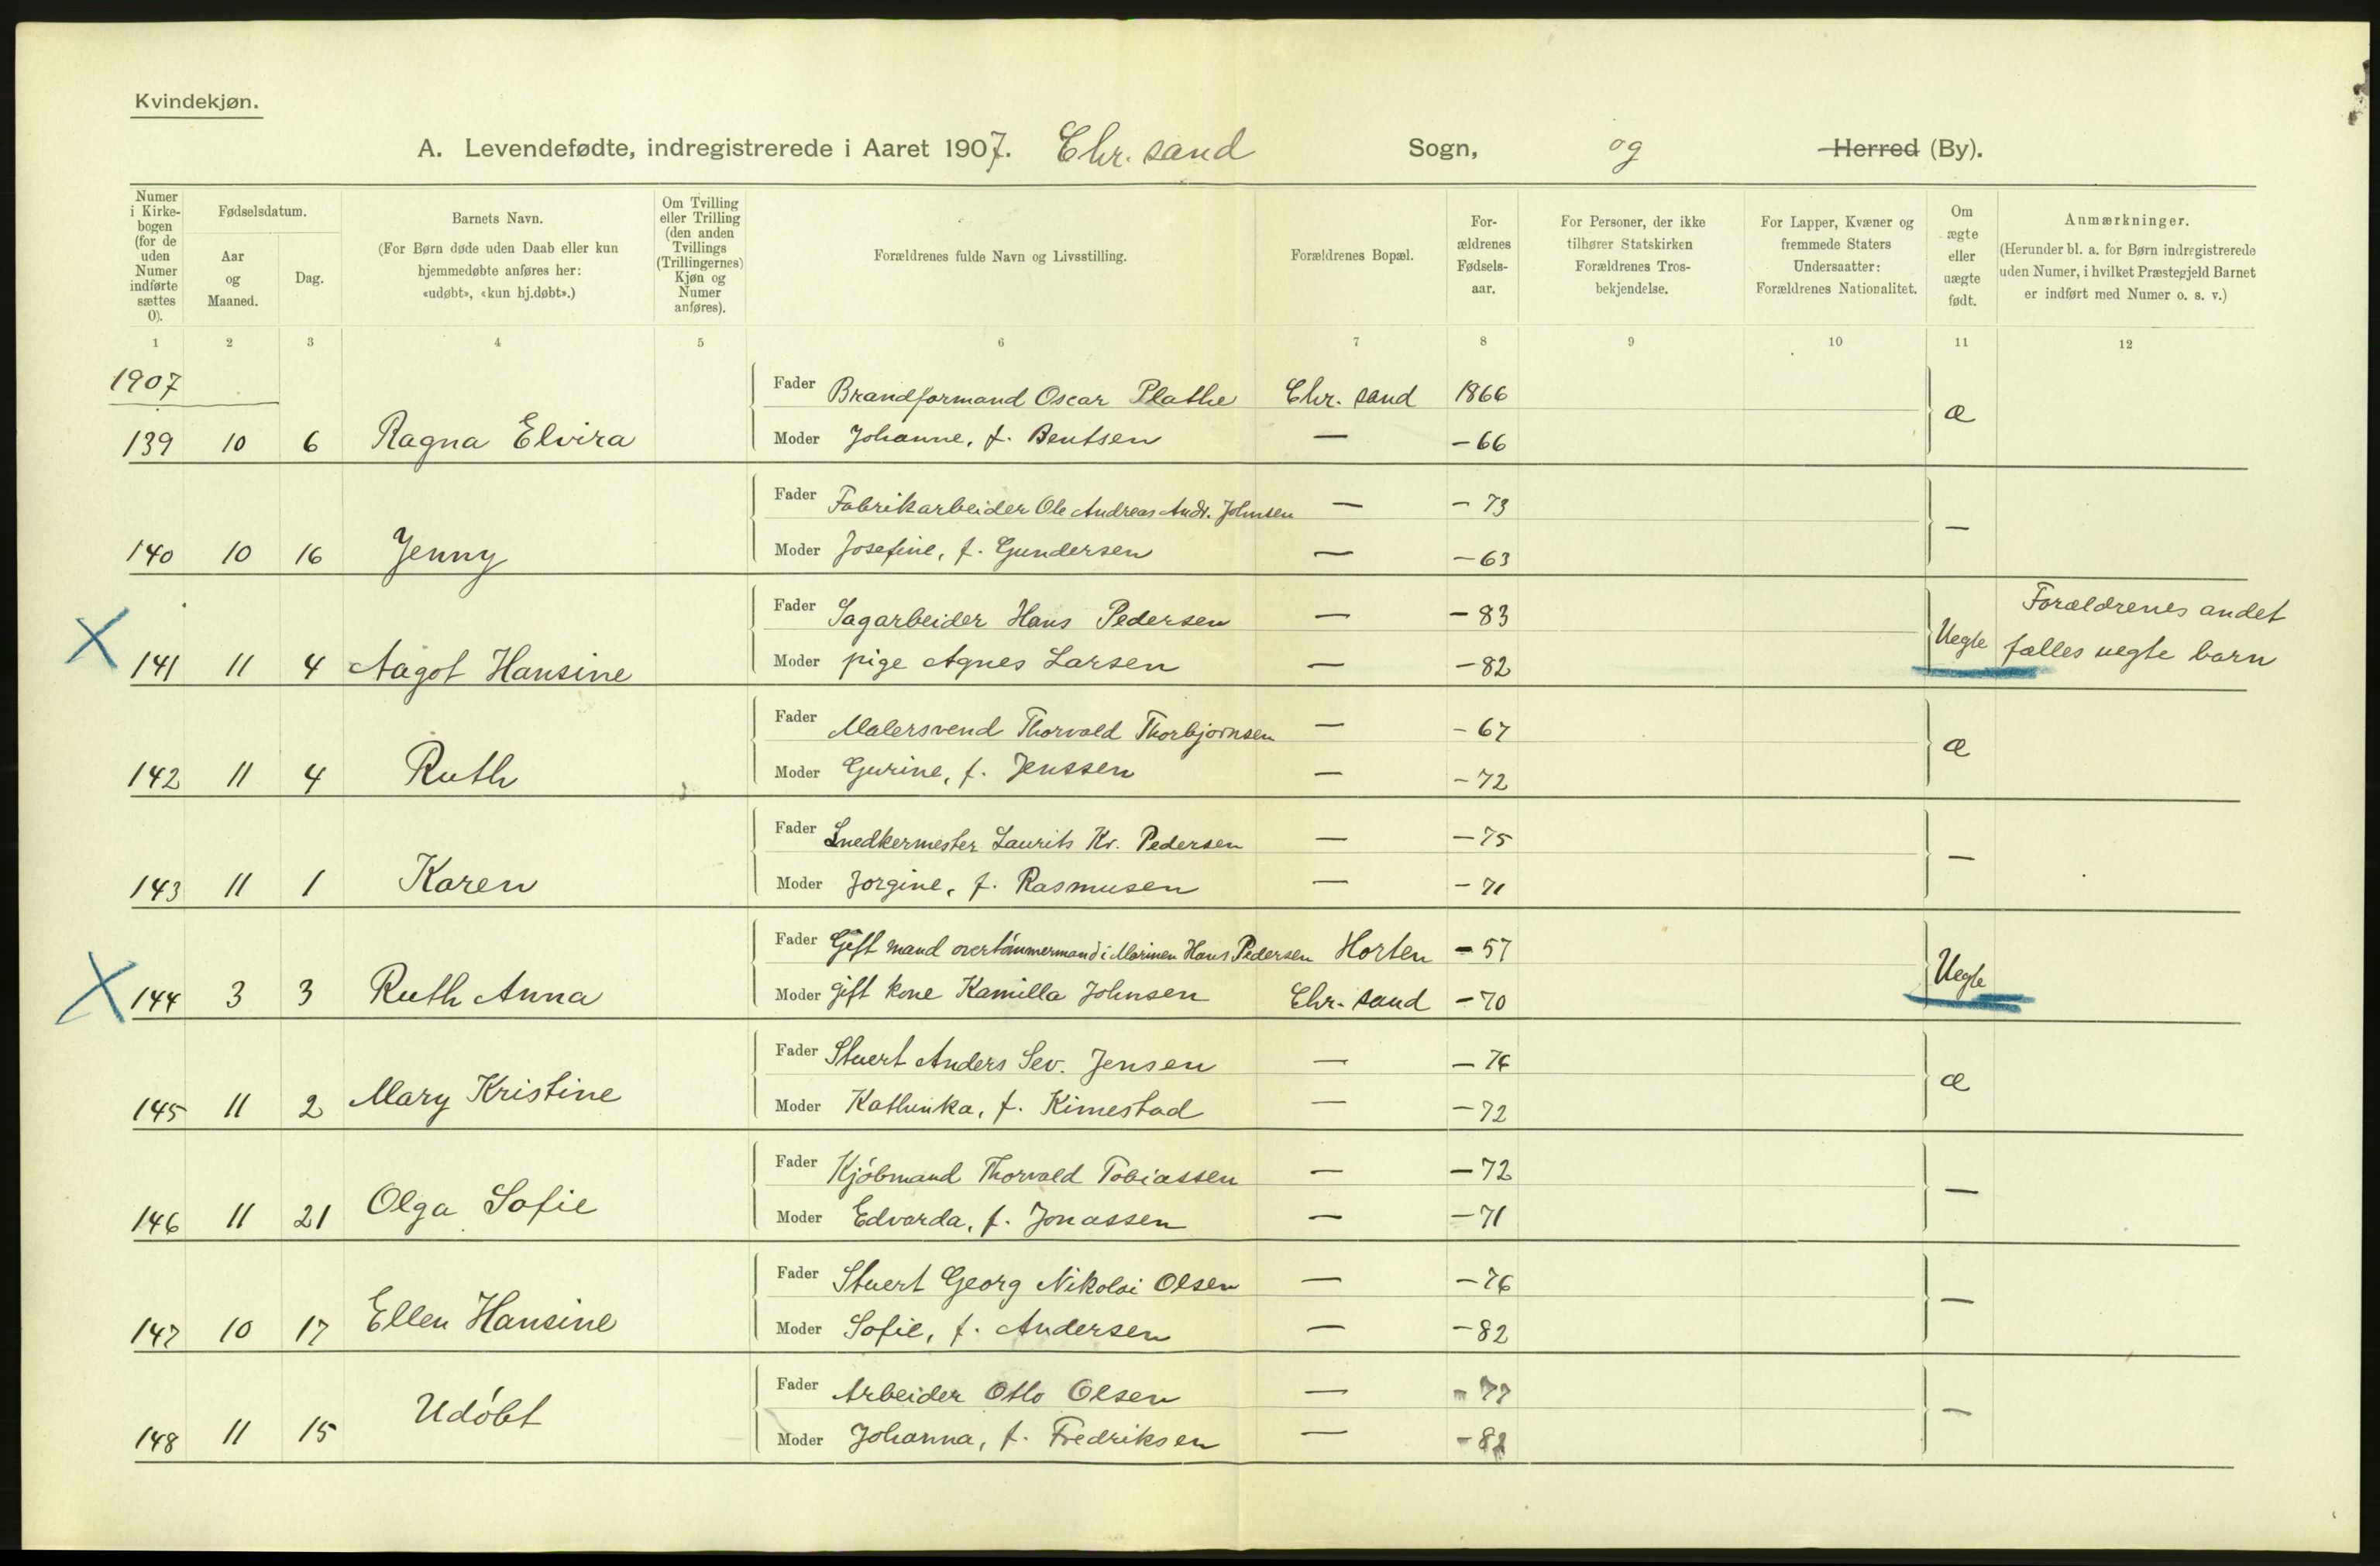 Kvindekjøn.
A. Levendefødte, indregistrerede i Aaret 1907. Chr. sand Sogn, og Herred (By).
Numer i Kirkebogen (for de uden Numer indførte sættes 0).
Fødselsdatum.
Aar og Maaned.
Dag.
Barnets Navn.
(For Børn døde uden Daab eller kun hjemmedøbte anføres her: «udøbt», «kun hj.døbt».)
Om Tvilling eller Trilling (den anden Tvillings (Trillingernes) Kjøn og Numer anføres).
Forældrenes fulde Navn og Livsstilling.
Forældrenes Bopæl.
Forældrenes Fødselsaar.
For Personer, der ikke tilhører Statskirken Forældrenes Trosbekjendelse.
For Lapper, Kvæner og fremmede Staters Undersaatter: Forældrenes Nationalitet.
Om ægte eller uægte født.
Anmærkninger.
(Herunder bl. a. for Børn indregistrerede uden Numer, i hvilket Præstegjeld Barnet er indført med Numer o. s. v.)
1 2 3 4 5 6 7 8 9 10 11 12
1907
Fader Brandformand Oscar Plathe Chr. sand 1866
139 10 6 Ragna Elvira Moder Johanne, f. Bentsen — - 66 æ
Fader Fabrikarbeider Ole Andreas Andr. Johnsen — - 73
140 10 16 Jenny Moder Josefine, f. Gundersen — - 63 —
Fader Sagarbeider Hans Pedersen — - 83 Forældrenes andet
X 141 11 4 Aagot Hansine Moder pige Agnes Larsen — - 82 Uegte fælles uegte barn
Fader Malersvend Thorvald Thorbjørnsen — - 67
142 11 4 Ruth Moder Gurine, f. Jenssen — - 72 æ
Fader Snedkermester Laurits Kr. Pedersen — - 75
143 11 1 Karen Moder Jorgine, f. Rasmusen — - 71 —
Fader Gift mand overtømmermand i Marinen Hans Pedersen Horten - 57
X 144 3 3 Ruth Anna Moder gift kone Kamilla Johnsen Chr. sand - 70 Uegte
Fader Stuert Anders Sev. Jensen — - 76
145 11 2 Mary Kristine Moder Kathinka, f. Kimestad — - 72 æ
Fader Kjøbmand Thorvald Tobiassen — - 72
146 11 21 Olga Sofie Moder Edvarda, f. Jonassen — - 71 —
Fader Stuert Georg Nikolai Olsen — - 76
147 10 17 Ellen Hansine Moder Sofie, f. Andersen — - 82 —
Fader Arbeider Otto Olsen — - 77
148 11 15 Udøbt Moder Johanna, f. Fredriksen — —